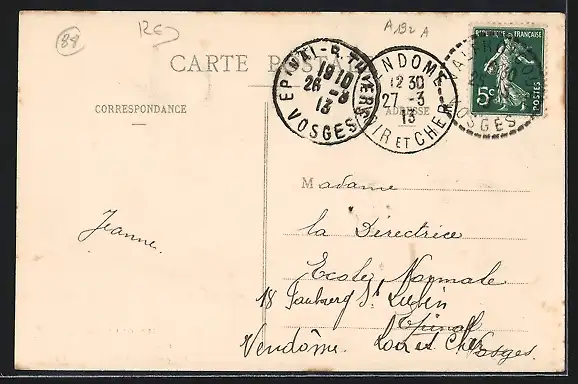 88
A 192 A
CARTE POSTALE
CORRESPONDANCE
ADRESSE
EPINAL-R. THIERS
19 10
26 -3
13
VOSGES
VENDOME
12 30
27 -3
13
LOIR ET CHER
VOSGES
REPUBLIQUE FRANÇAISE
5c
POSTES
Madame
la Directrice
Ecole Normale
18 Faubourg St Lubin
Epinal
Vendôme. Loir et Cher
Vosges.
Jeanne.